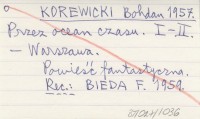 KOREWICKI Bohdan 1957.
Przez ocean czasu. I-II.
— Warszawa.
Powieść fantastyczna.
Rec.: BIEDA F. 1959.